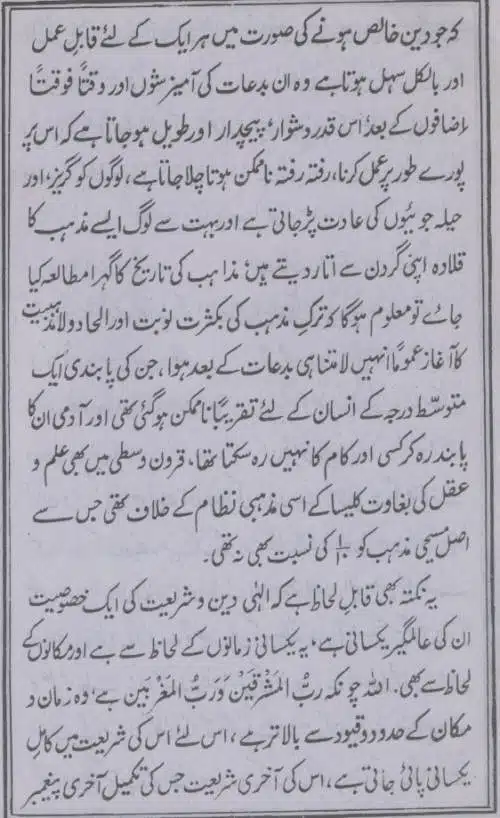 کہ جو دین خالص ہونے کی صورت میں ہر ایک کے لئے قابل عمل
اور بالکل سہل ہوتا ہے وہ ان بدعات کی آمیزشوں اور وقتاً فوقتاً
اضافوں کے بعد، اس قدر دشوار، پیچدار اور طویل ہو جاتا ہے کہ اس پر
پورے طور پر عمل کرنا، رفتہ رفتہ ناممکن ہوتا چلا جاتا ہے، لوگوں کو گریز، اور
حیلہ جوئیوں کی عادت پڑ جاتی ہے اور بہت سے لوگ ایسے مذہب کا
قلادہ اپنی گردن سے اتار دیتے ہیں، مذاہب کی تاریخ کا گہرا مطالعہ کیا
جائے تو معلوم ہوگا کہ ترکِ مذہب کی بکثرت نوبت اور الحاد و لامذہبیت
کا آغاز عموماً انہیں لامتناہی بدعات کے بعد ہوا، جن کی پابندی ایک
متوسّط درجہ کے انسان کے لئے تقریباً ناممکن ہو گئی تھی اور آدمی ان کا
پابند رہ کر کسی اور کام کا نہیں رہ سکتا تھا، قرون وسطی میں بھی علم و
عقل کی بغاوت کلیسا کے اسی مذہبی نظام کے خلاف تھی جس سے
اصل مسیحی مذہب کو ۱/۱۰ کی نسبت بھی نہ تھی۔
یہ نکتہ بھی قابل لحاظ ہے کہ الٰہی دین و شریعت کی ایک خصوصیت
ان کی عالمگیر یکسانی ہے، یہ یکسانی زمانوں کے لحاظ سے ہے اور مکانوں کے
لحاظ سے بھی۔ اللہ چونکہ رَبُّ الْمَشْرِقَيْنِ وَرَبُّ الْمَغْرِبَيْن ہے، وہ زمان و
مکان کے حدود و قیود سے بالاتر ہے، اس لئے اس کی شریعت میں کامل
یکسانی پائی جاتی ہے، اس کی آخری شریعت جس کی تکمیل آخری پیغمبر